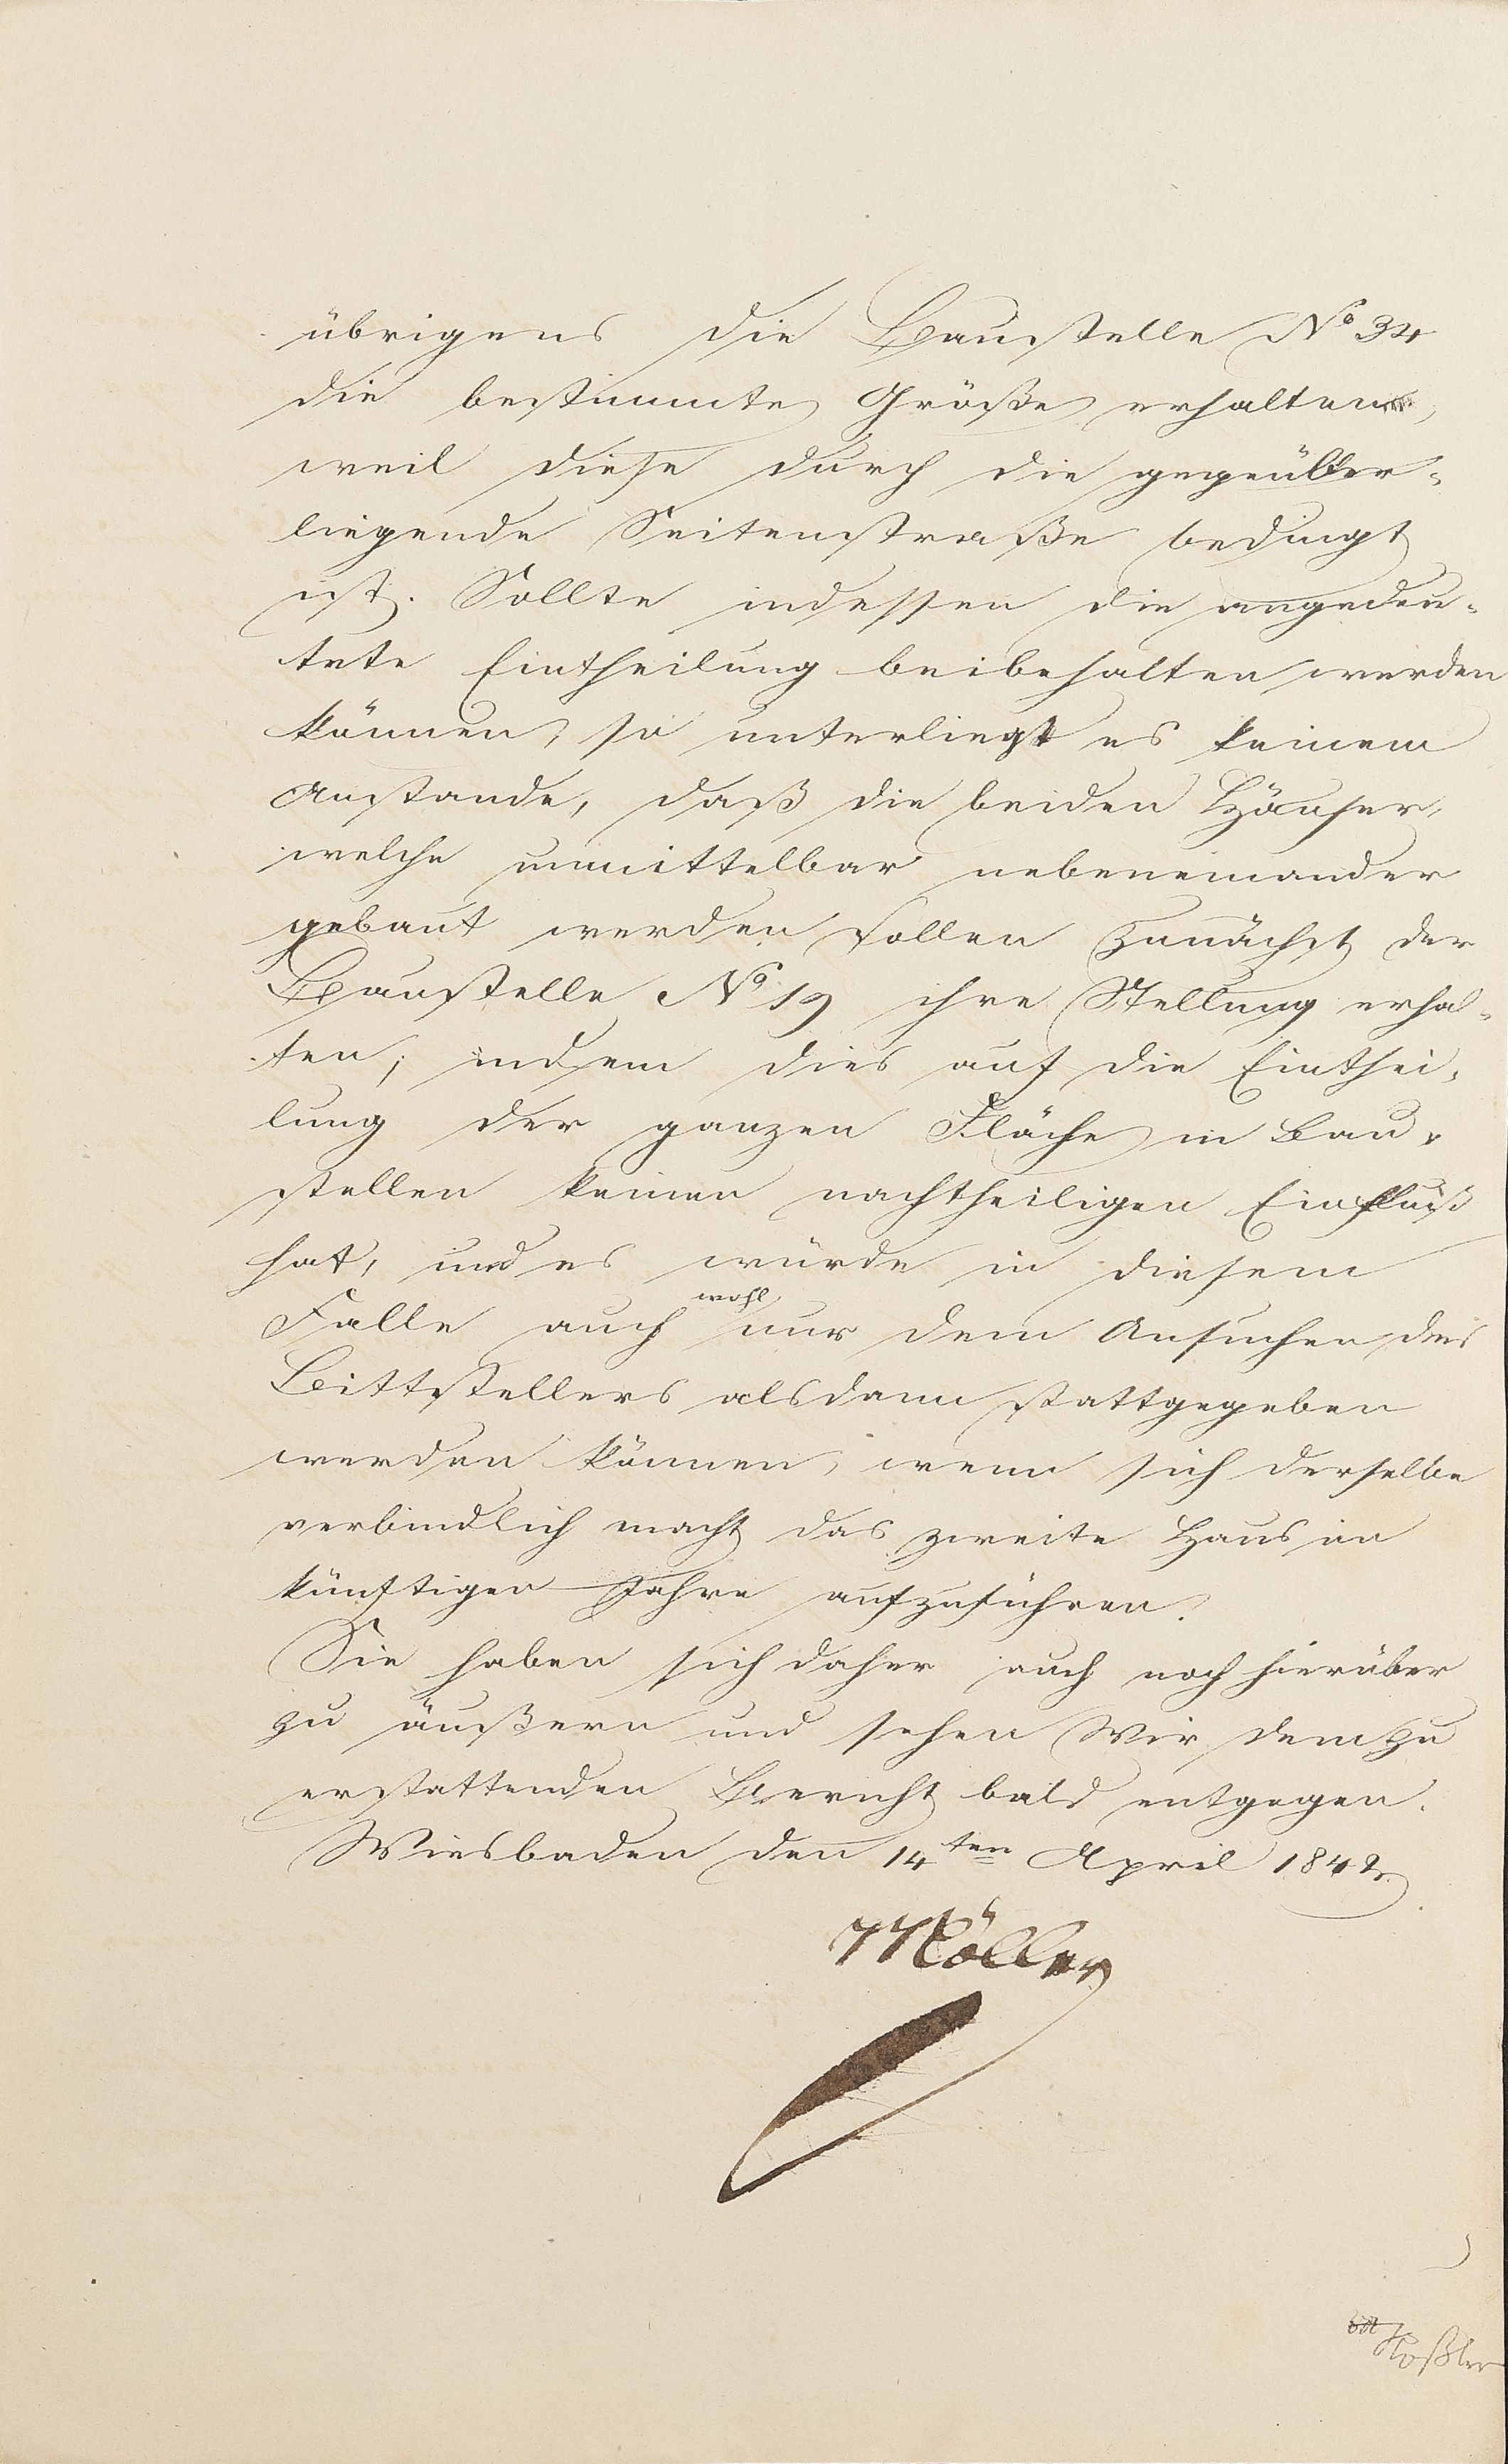 übrigens die Baustelle No 34
die bestimmte Größe erhalten,
weil diese durch die gegenüber-
liegende Seitenstraße bedingt
ist. Sollte indessen die angedeu-
tete Eintheilung beibehalten werden
können, so unterliegt es keinem
Anstande, daß die beiden Häuser,
welche unmittelbar nebeneinander
gebaut werden sollen zunächst der
Baustelle No 19 ihre Stellung erhal-
ten; indem dies auf die Einthei-
lung der ganzen Fläche in Bau-
stellen keinen nachtheiligen Einfluß
hat, und es würde in diesem
Falle auch wohl nur dem Ansuchen des
Bittstellers alsdann stattgegeben
werden können, wenn sich derselbe
verbindlich macht das zweite Haus im
künftigen Jahre aufzuführen.
Sie haben sich daher auch noch hierüber
zu äußern und sehen Wir dem zu
erstattenden Bericht bald entgegen.
Wiesbaden den 14ten April 1842.
Möller
vdt Hoßler